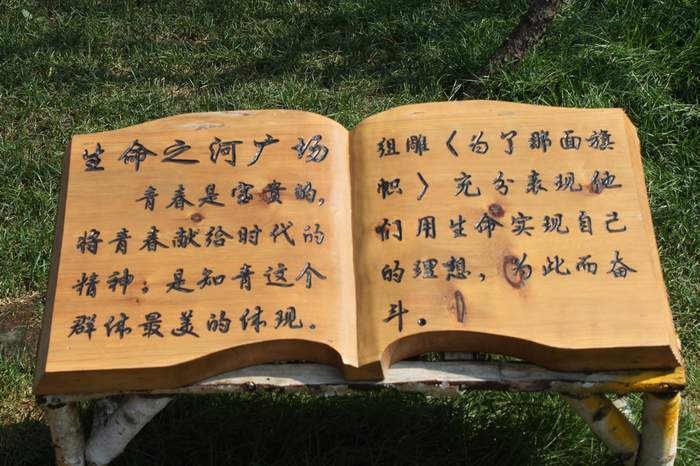 生命之河广场
青春是富贵的,
将青春献给时代的
精神;是知青这个
群体最美的体现。
组雕《为了那面旗
帜》充分表现他
们用生命实现自己
的理想,为此而奋
斗.